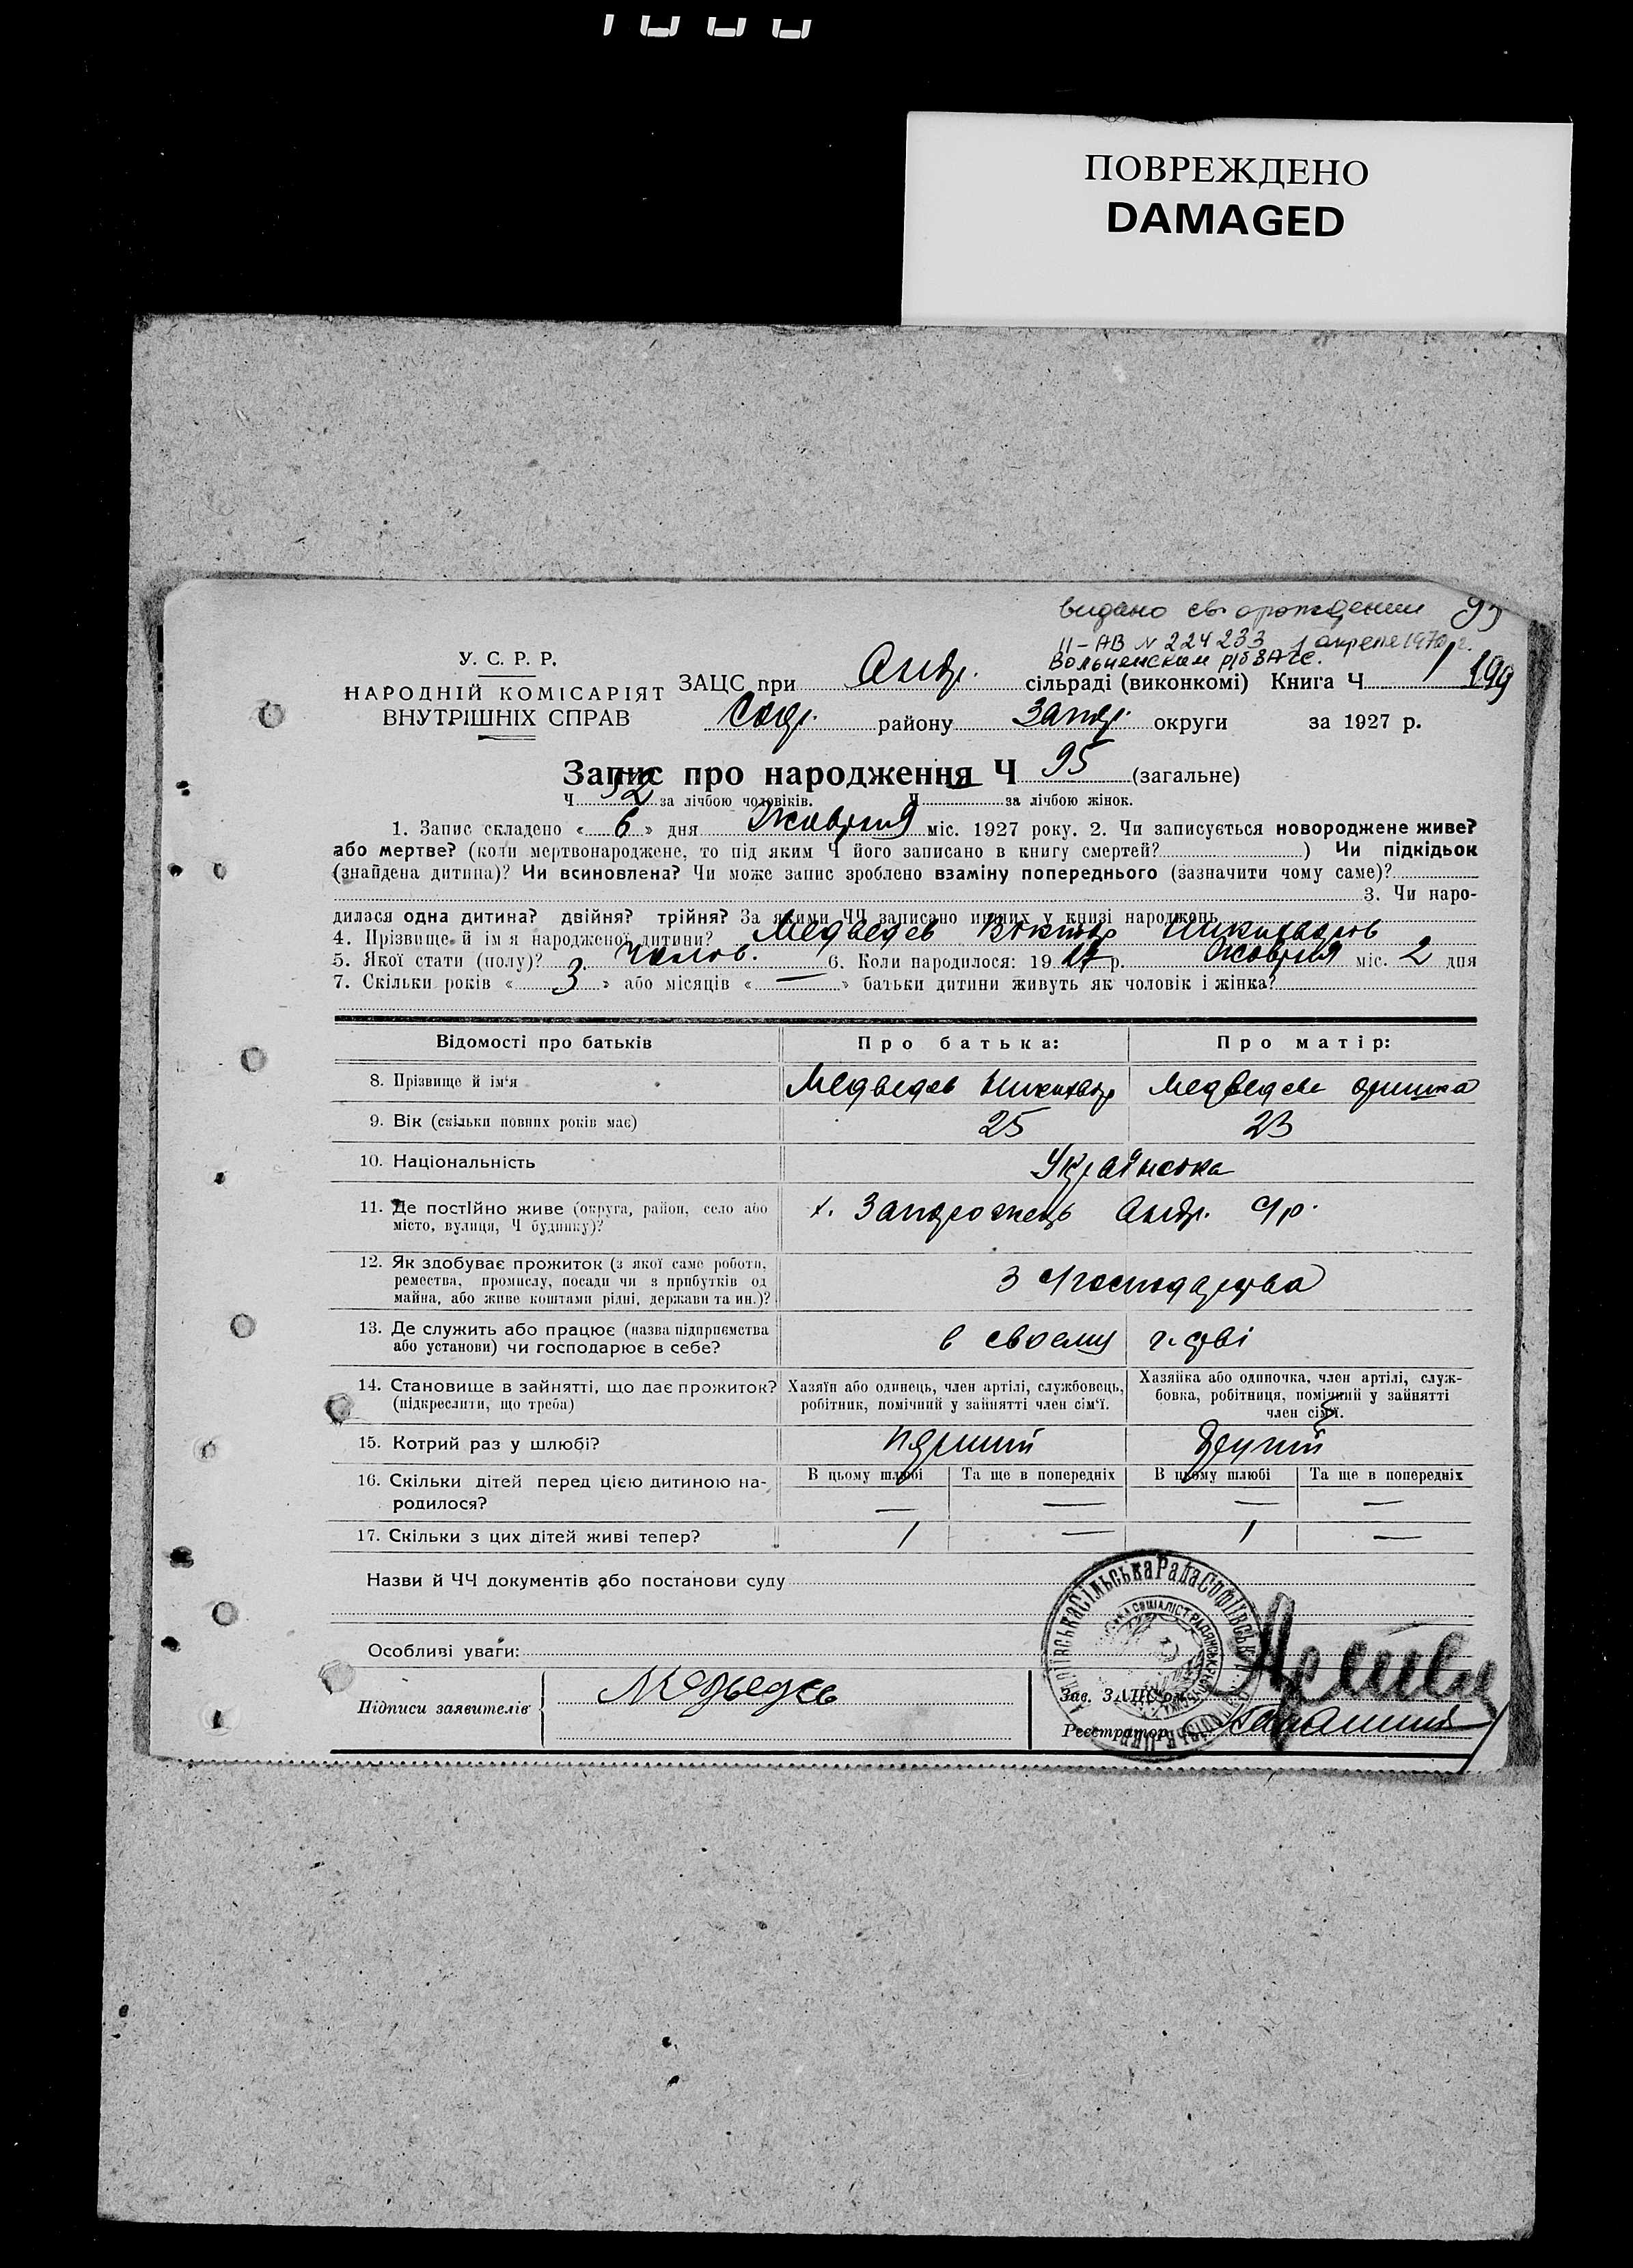 ПОВРЕЖДЕНО
DAMAGED
видано св. о рождении 95
II-АВ N 224233 1 апреля 1970 г.
Вольнянским р/б ЗАГС.
У. С. Р. Р.
НАРОДНІЙ КОМІСАРІЯТ
ВНУТРІШНІХ СПРАВ
ЗАЦС при Андр. сільраді (виконкомі) Книга Ч 1 199
Соф. району Запор. округи за 1927 р.
Запис про народження Ч 95 (загальне)
Ч 52 за лічбою чоловіків. Ч за лічбою жінок.
1. Запис складено « 6 » дня Жовтня міс. 1927 року. 2. Чи записується новороджене живе?
або мертве? (коли мертвонароджене, то під яким Ч його записано в книгу смертей? ) Чи підкідьок
(знайдена дитина)? Чи всиновлена? Чи може запис зроблено взаміну попереднього (зазначити чому саме)?
3. Чи наро-
дилася одна дитина? двійня? трійня? За якими ЧЧ записано инших у книзі народжень
4. Прізвище й ім'я народженої дитини? Медведев Віктор Никифоров
5. Якої стати (полу)? Чолов. 6. Коли народилося: 19 27 р. Жовтня міс. 2 дня
7. Скільки років « 3 » або місяців « — » батьки дитини живуть як чоловік і жінка?
Відомості про батьків Про батька: Про матір:
8. Прізвище й ім'я Медведев Никифор Медведева Оришка
9. Вік (скільки повних років має) 25 23
10. Національність Українська
11. Де постійно живе (округа, район, село або
місто, вулиця, Ч будинку)? х. Запорожець Андр. с/р.
12. Як здобуває прожиток (з якої саме роботи,
ремества, промислу, посади чи з прибутків од
майна, або живе коштами рідні, держави та ин.)? З с/господарства
13. Де служить або працює (назва підприємства
або установи) чи господарює в себе? в своему г-стві
14. Становище в зайнятті, що дає прожиток?
(підкреслити, що треба)
Хазяїн або одинець, член артілі, службовець,
робітник, помічний у зайнятті член сім'ї.
Хазяйка або одиночка, член артілі, служ-
бовка, робітниця, помічний у зайнятті
член сім'ї.
15. Котрий раз у шлюбі? перший другий
16. Скільки дітей перед цією дитиною на-
родилося?
В цьому шлюбі Та ще в попередніх В цьому шлюбі Та ще в попередніх
— — — —
17. Скільки з цих дітей живі тепер? 1 — 1 —
Назви й ЧЧ документів або постанови суду
Особливі уваги:
Підписи заявителів Медведев
Зав. ЗАЦС'ом
Реєстратор